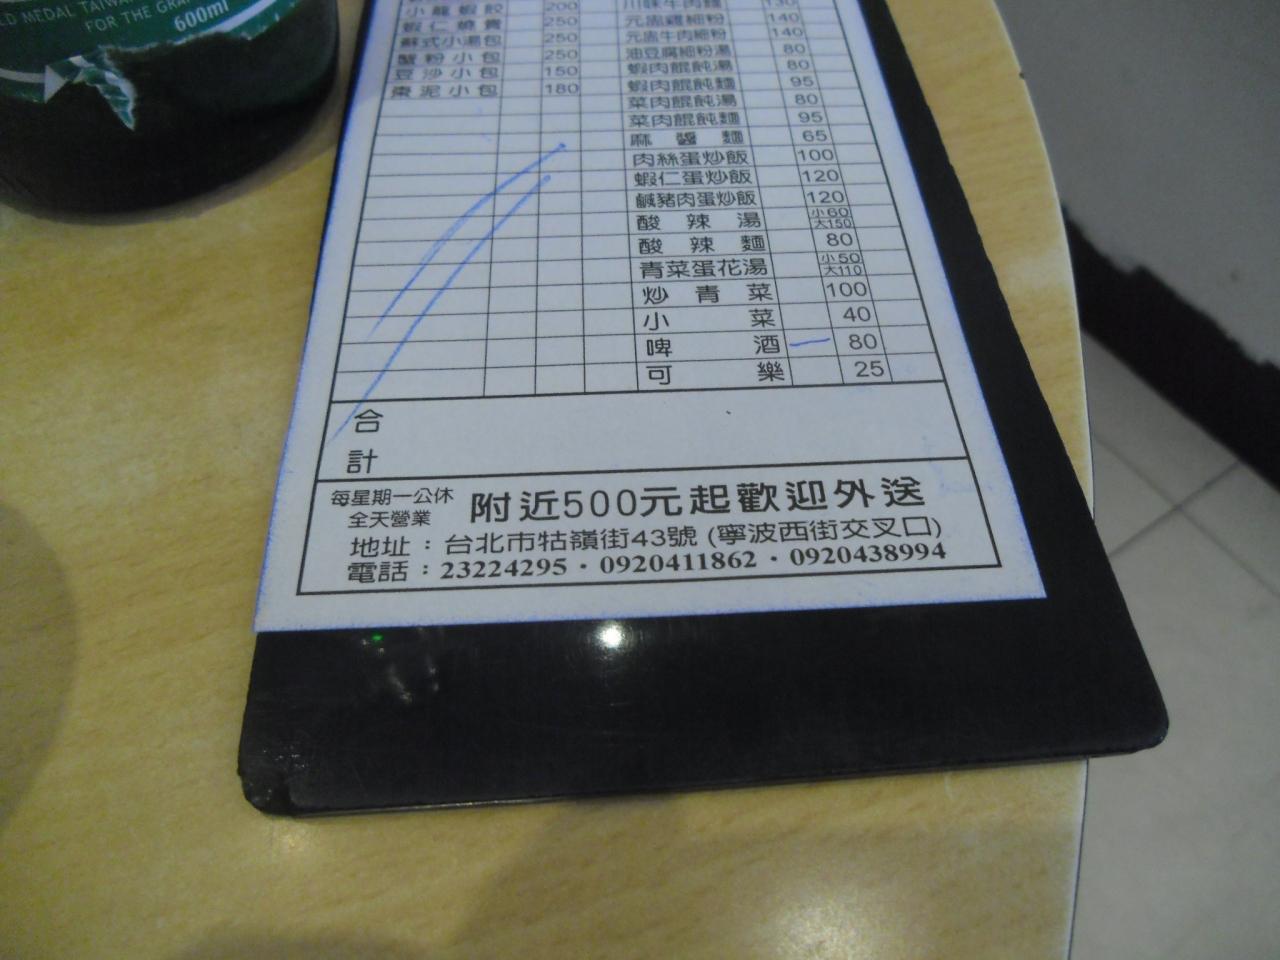 LD MEDAL TAIWAN
FOR THE GRA
600ml
小龍蝦餃 200
蝦仁燒賣 250
蘇式小湯包 250
蟹粉小包 250
豆沙小包 150
棗泥小包 180
川味牛肉麵 130
元盅雞細粉 140
元盅牛肉細粉 140
油豆腐細粉湯 80
蝦肉餛飩湯 80
蝦肉餛飩麵 95
菜肉餛飩湯 80
菜肉餛飩麵 95
麻醬麵 65
肉絲蛋炒飯 100
蝦仁蛋炒飯 120
鹹豬肉蛋炒飯 120
酸辣湯 小60 大150
酸辣麵 80
青菜蛋花湯 小50 大110
炒青菜 100
小菜 40
啤酒 一 80
可樂 25
合計
每星期一公休
全天營業
附近500元起歡迎外送
地址：台北市牯嶺街43號 (寧波西街交叉口)
電話：23224295・0920411862・0920438994